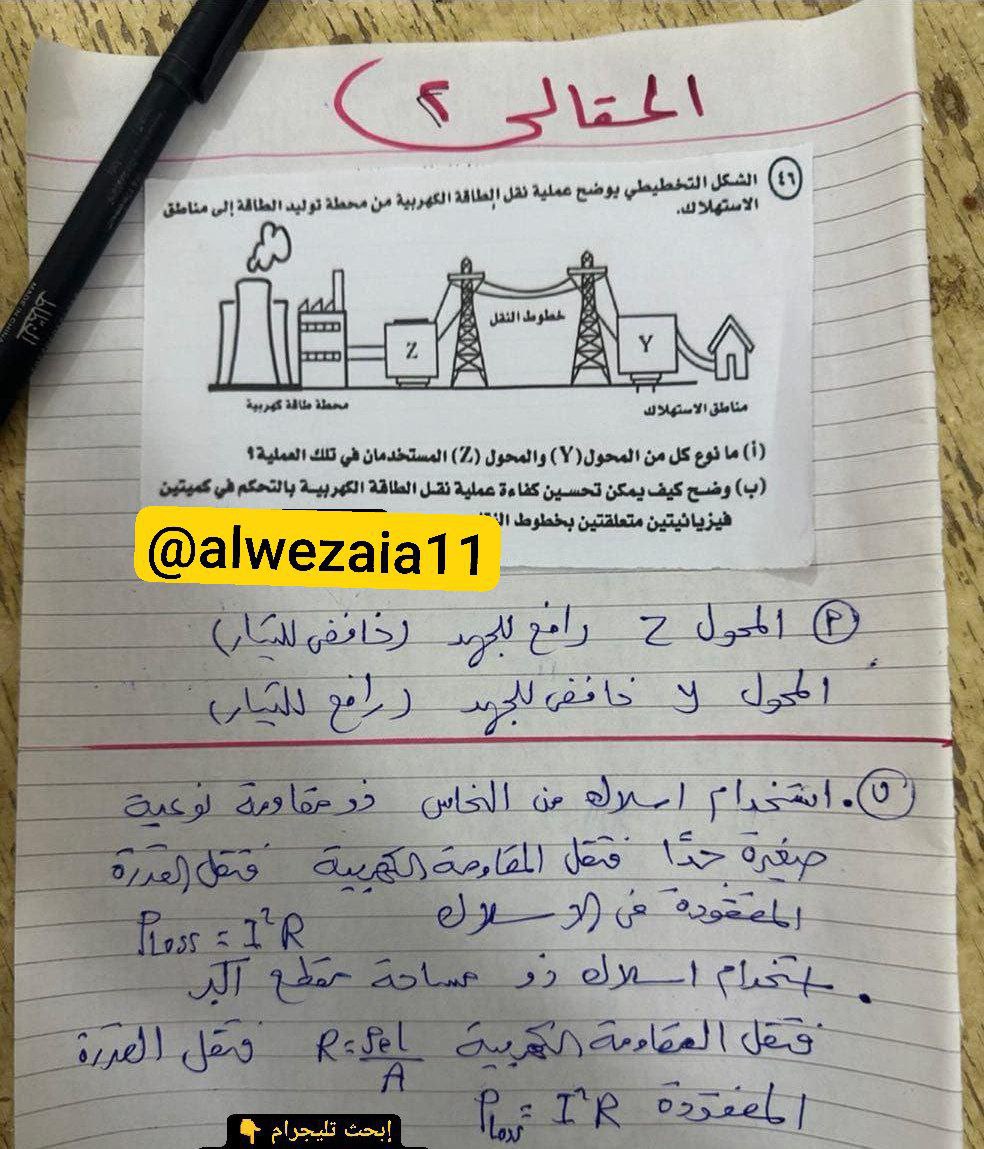 المقالى ٢
٤٦ الشكل التخطيطي يوضح عملية نقل الطاقة الكهربية من محطة توليد الطاقة إلى مناطق
الاستهلاك.
خطوط النقل
Z
Y
محطة طاقة كهربية
مناطق الاستهلاك
(أ) ما نوع كل من المحول (Y) والمحول (Z) المستخدمان في تلك العملية؟
(ب) وضح كيف يمكن تحسين كفاءة عملية نقل الطاقة الكهربية بالتحكم في كميتين
فيزيائيتين متعلقتين بخطوط
@alwezaia11
أ المحول Z رافع للجهد (خافض للتيار)
المحول y خافض للجهد (رافع للتيار)
ب . استخدام اسلاك من النحاس ذو مقاومة نوعية
صغيرة جدًا فتقل المقاومة الكهربية فتقل القدرة
المفقودة فى الاسلاك P Loss = I²R
. استخدام اسلاك ذو مساحة مقطع اكبر
فتقل المقاومة الكهربية R = ρe l / A فتقل القدرة
المفقودة P Loss = I²R
إبحث تليجرام 👇
MADE IN CHINA